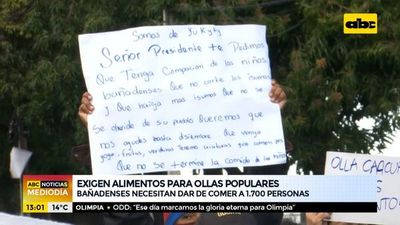 abc
Somos de Yukyty
Señor Presidente te Pedimos
Que Tenga Compasion de los niños
bañadenses Que no corte los isumos
y Que haiga mas isumos Que no se
olvide de su pueblo Queremos que
nos ayude hasta disiembre Que venga
frutas, verduras
Que no se termine la comida de los niños
OLLA
ABC NOTICIAS
MEDIODÍA
EXIGEN ALIMENTOS PARA OLLAS POPULARES
BAÑADENSES NECESITAN DAR DE COMER A 1.700 PERSONAS
13:01 14°C OLIMPIA • ODD: "Ese día marcamos la gloria eterna para Olimpia"